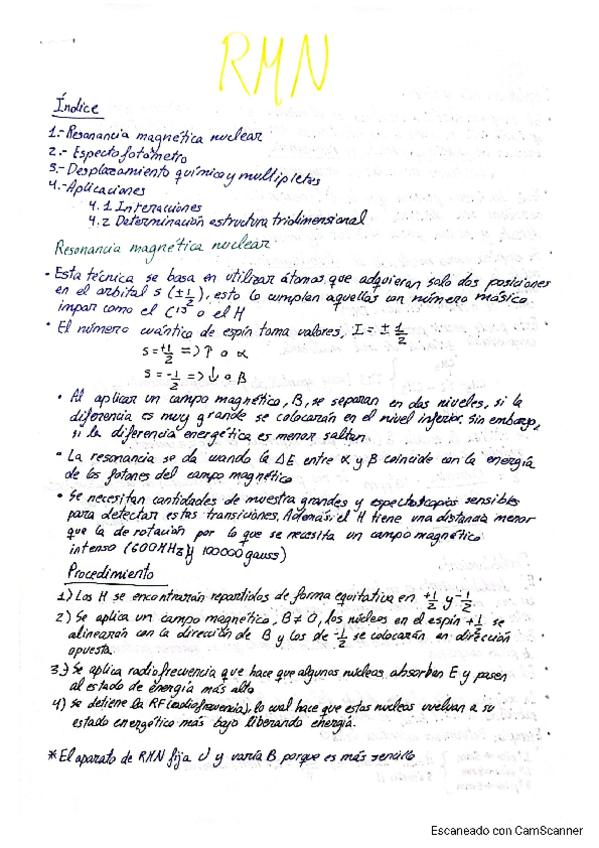 RMN
Índice
1.- Resonancia magnética nuclear
2.- Espectofotómetro
3.- Desplazamiento químico y multipletes
4.- Aplicaciones
4.1 Interacciones
4.2 Determinación estructura tridimensional
Resonancia magnética nuclear
• Esta técnica se basa en utilizar átomos que adquieran solo dos posiciones
en el orbital s (± 1/2), esto lo cumplen aquellas con número másico
impar como el C¹³ o el H
• El número cuántico de espín toma valores, I = ± 1/2
s = +1/2 => ↑ o α
s = -1/2 => ↓ o β
• Al aplicar un campo magnético, B, se separan en dos niveles, si la
diferencia es muy grande se colocarán en el nivel inferior. Sin embargo,
si la diferencia energética es menor saltan
• La resonancia se da cuando la ΔE entre α y β coincide con la energía
de los fotones del campo magnético
• Se necesitan cantidades de muestra grandes y espectoscopios sensibles
para detectar estas transiciones. Además, el H tiene una distancia menor
que la de rotación por lo que se necesita un campo magnético
intenso (600MHz y 100000 gauss)
Procedimiento
1) Los H se encontrarán repartidos de forma equitativa en +1/2 y -1/2
2) Se aplica un campo magnético, B ≠ 0, los núcleos en el espín +1/2 se
alinearán con la dirección de B y los de -1/2 se colocarán en dirección
opuesta.
3) Se aplica radiofrecuencia que hace que algunos núcleos absorban E y pasen
al estado de energía más alto
4) Se detiene la RF (radiofrecuencia), lo cual hace que estos nucleos vuelvan a su
estado energético más bajo liberando energía.
* El aparato de RMN fija ν y varía B porque es más sencillo
Escaneado con CamScanner